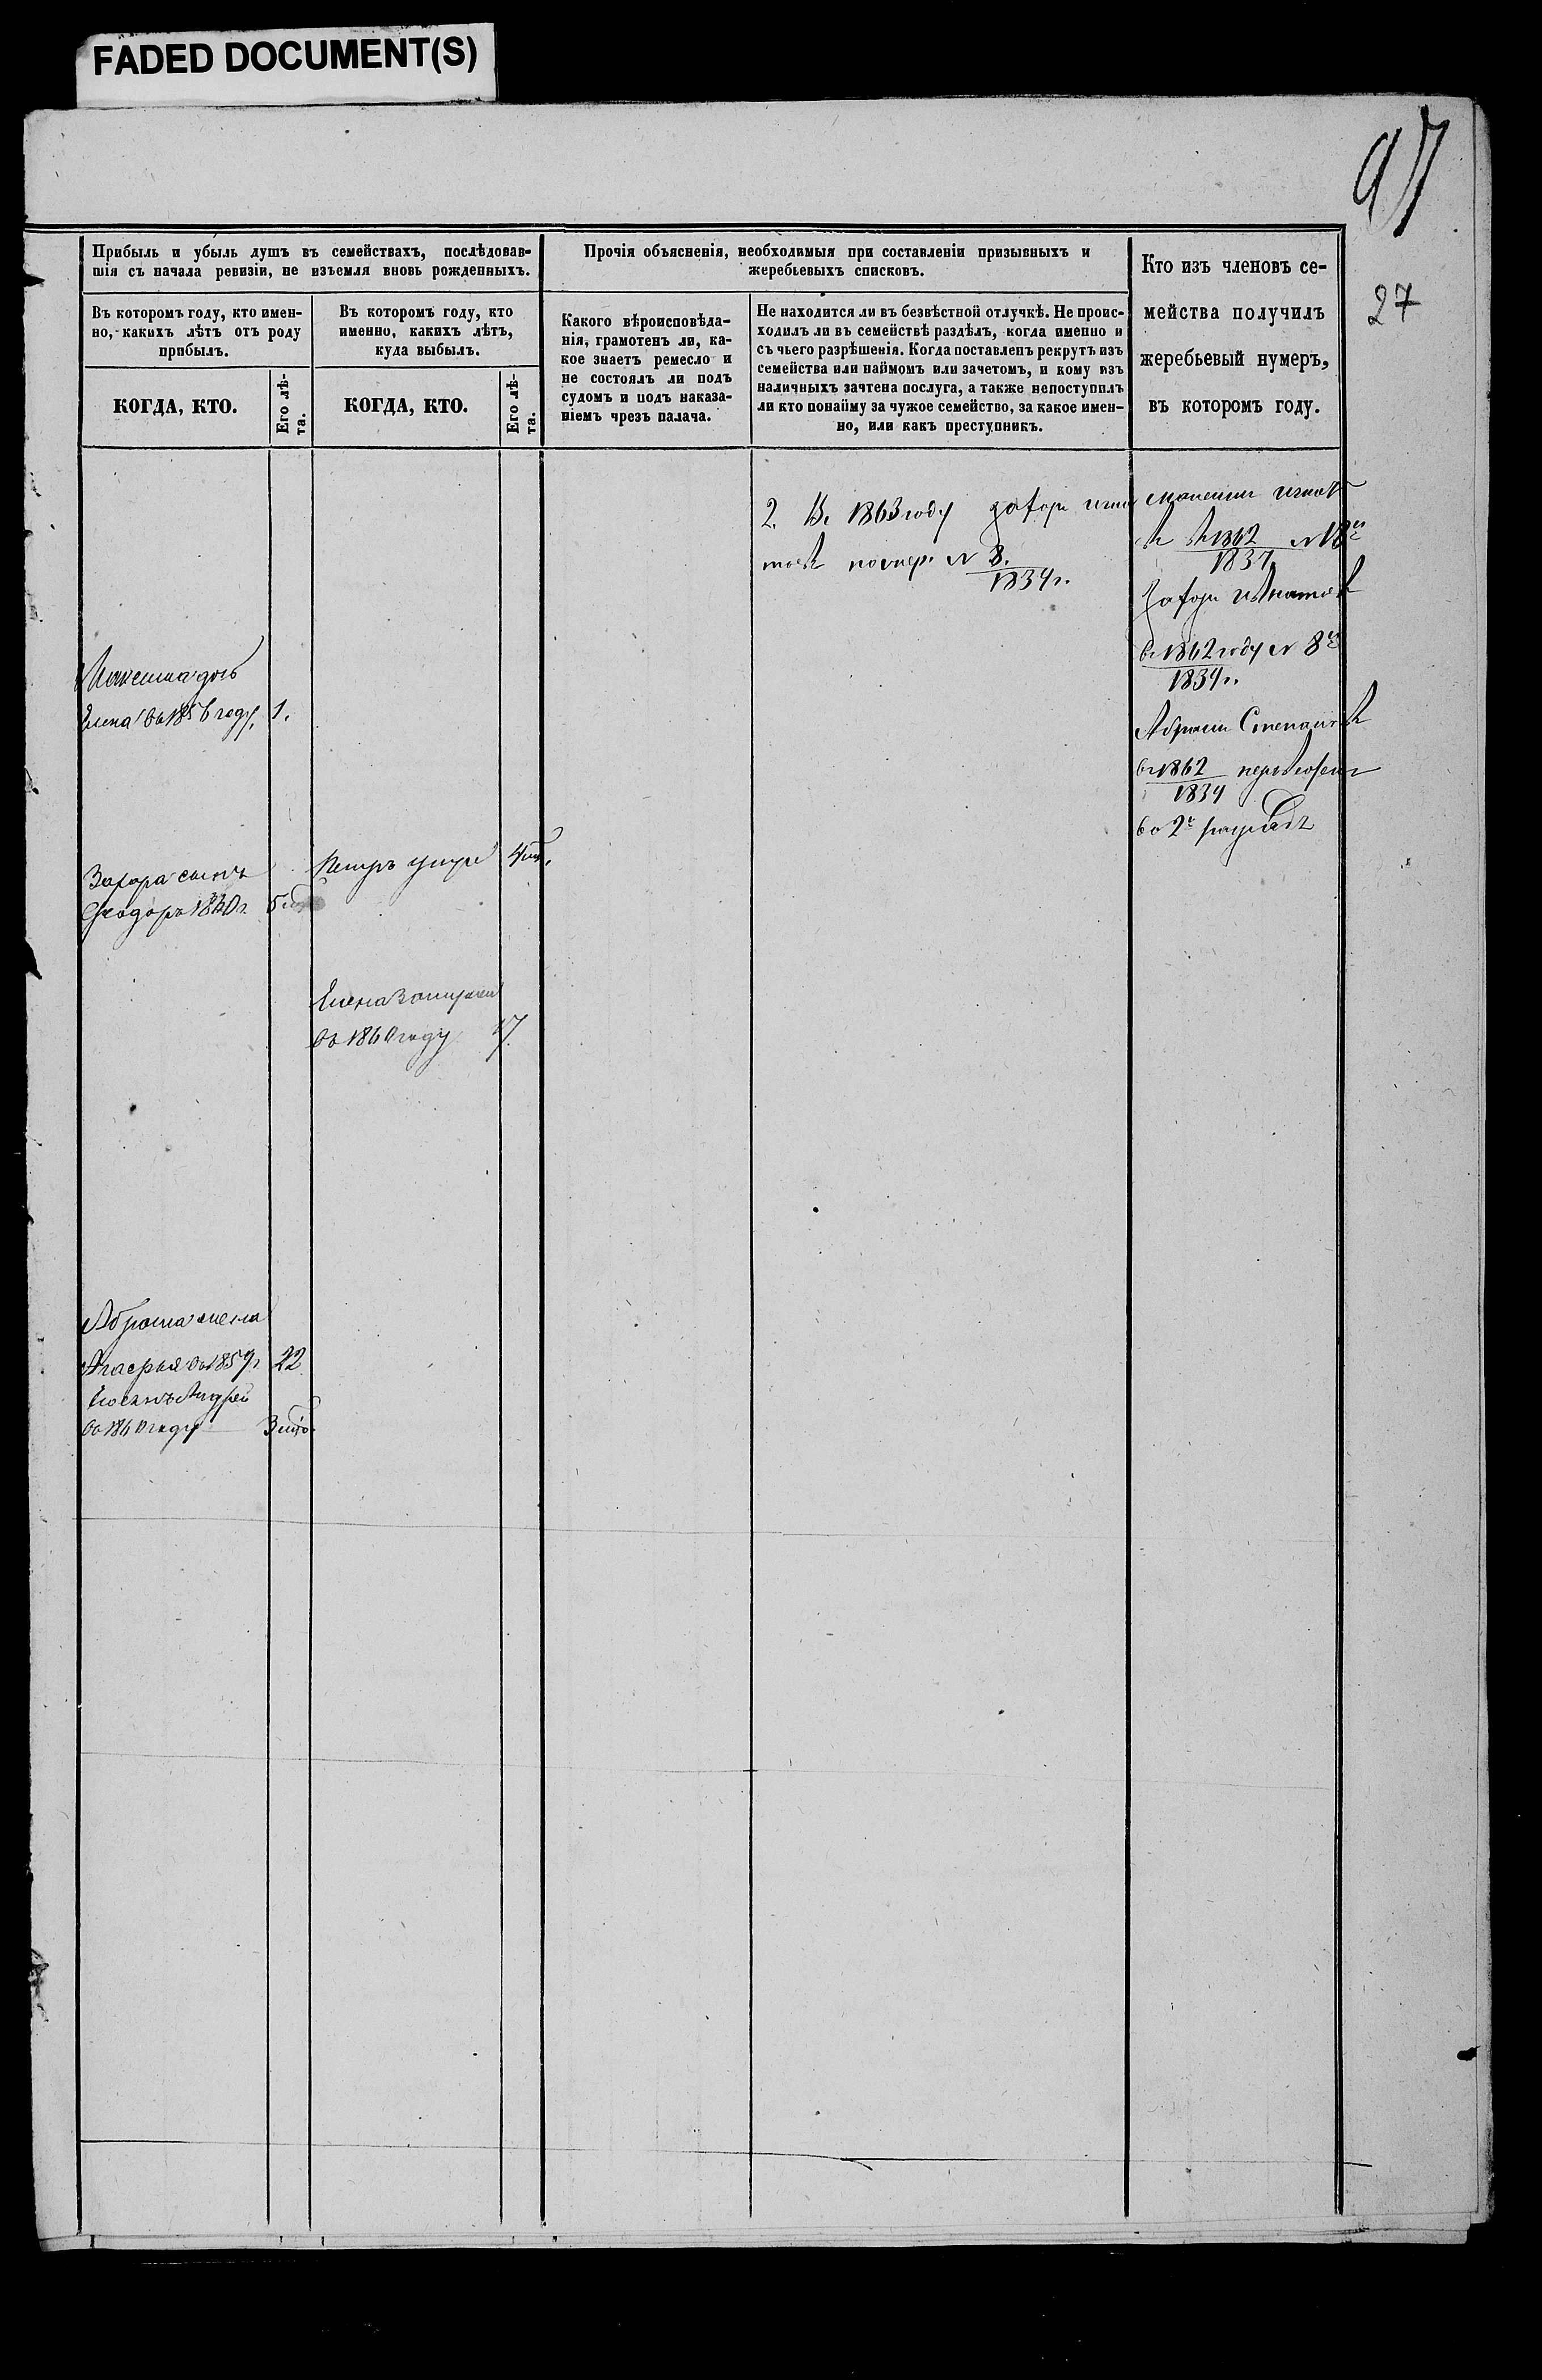 FADED DOCUMENT(S)
97
27
Прибыль и убыль душъ въ семействахъ, послѣдовав-
шія съ начала ревизіи, не изъемля вновь рожденныхъ.
Въ которомъ году, кто имен-
но, какихъ лѣтъ отъ роду
прибылъ.
КОГДА, КТО.
Его лѣ-
та.
Въ которомъ году, кто
именно, какихъ лѣтъ,
куда выбылъ.
КОГДА, КТО.
Его лѣ-
та.
Прочія объясненія, необходимыя при составленіи призывныхъ и
жеребьевыхъ списковъ.
Какого вѣроисповѣда-
нія, грамотенъ ли, ка-
кое знаетъ ремесло и
не состоялъ ли подъ
судомъ и подъ наказа-
ніемъ чрезъ палача.
Не находится ли въ безвѣстной отлучкѣ. Не проис-
ходилъ ли въ семействѣ раздѣлъ, когда именно и
съ чьего разрѣшенія. Когда поставленъ рекрутъ изъ
семейства или наймомъ или зачетомъ, и кому изъ
наличныхъ зачтена послуга, а также непоступилъ
ли кто понайму за чужое семейство, за какое имен-
но, или какъ преступникъ.
Кто изъ членовъ се-
мейства получилъ
жеребьевый нумеръ,
въ которомъ году.
2. Въ 1863 году захаръ игна
товъ номер. № 8.
1834 г.
1862 № 18
1837
Захаръ Игнатов
въ 1862 году № 8
1834 г.
Абрамъ Степанов
въ 1862
1834
во 2 разрядѣ
Максима дочь
Елена въ 1856 году, 1.
Захара сынъ
Феодоръ
Петръ умре
Елена
въ 1860 году 17
Абрама жена
въ 1859 г. 22
Андрей
въ 1860 году